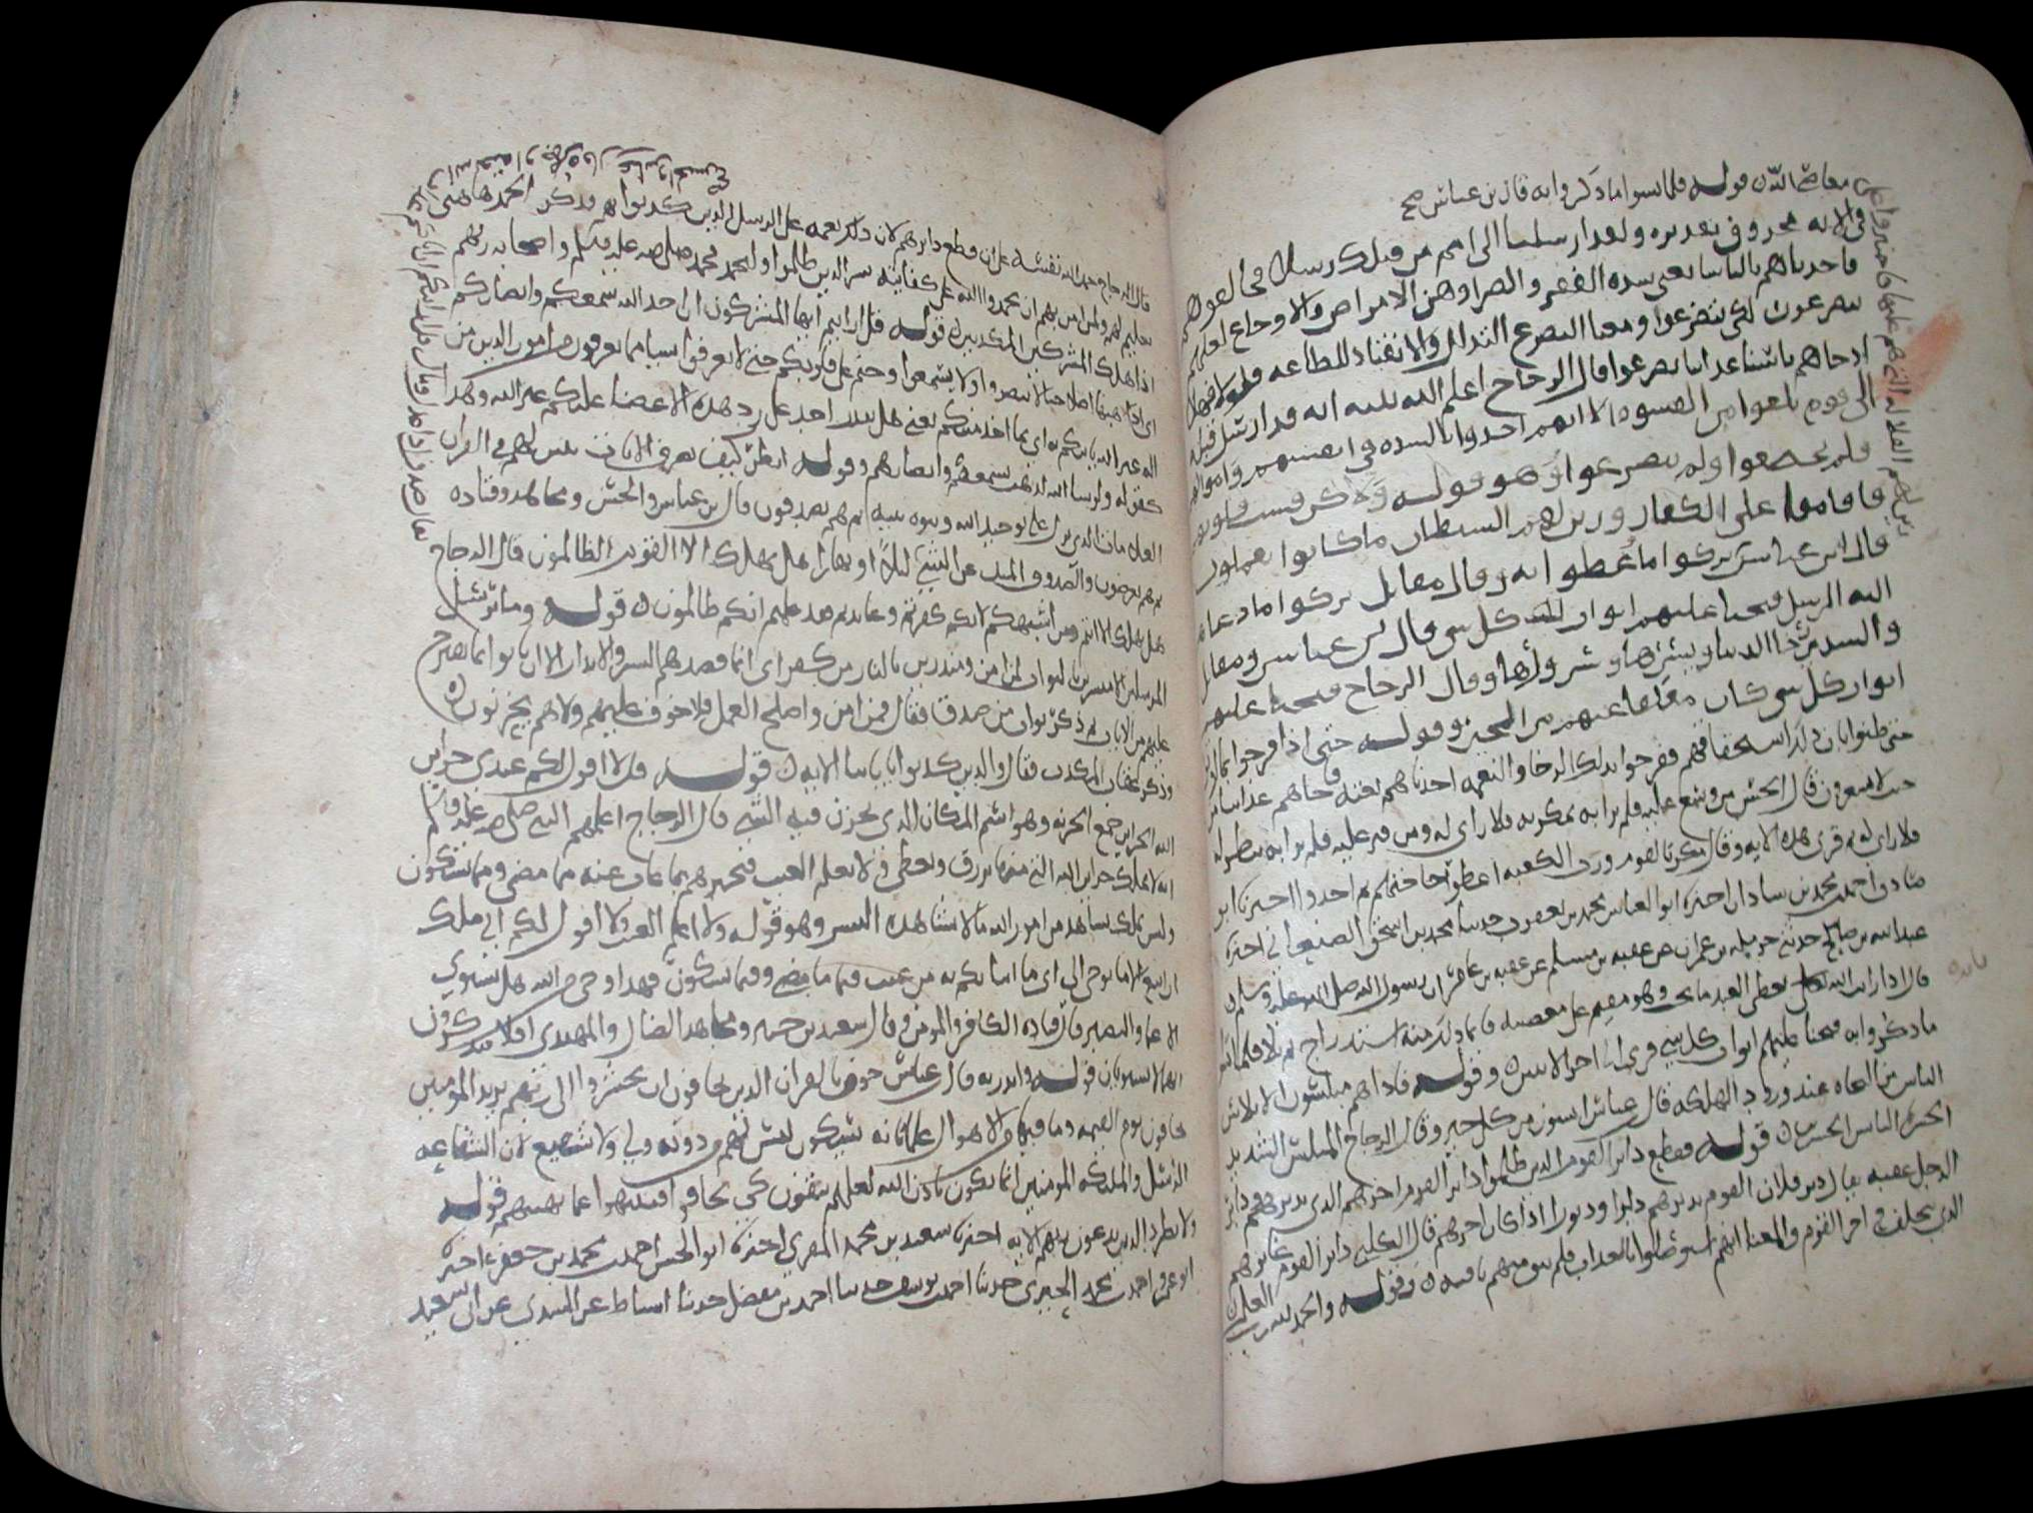 في الايه محذوف تقديره ولقد ارسلنا الى امم من قبلك رسلا فخالفوهم
فاخذناهم بالباسا يعني شده الفقر والضرا وهي الامراض والاوجاع لعلهم
يتضرعون لكي يتضرعوا ومعنا التضرع التذلل والانقياد للطاعه فلولا فهلا
اذ جاهم باسنا عذابنا تضرعوا قال الزجاج اعلم الله نبيه انه قد ارسل قبله
الى قوم بلغوا من القسوه الا انهم اخذوا بالشده في انفسهم واموالهم
فلم يخضعوا ولم يتضرعوا وهو قوله ولكن قست قلوبهم
فاقاموا على الكفار وزين لهم الشيطان ما كانوا يعملون
معاصي الله قوله فلما نسوا ما ذكروا به قال بن عباس صح
قال ابن عباس تركوا ما وعظوا به وقال مقاتل تركوا ما دعاهم
اليه الرسل فتحنا عليهم ابواب كل شي قال ابن عباس ومقاتل
والسدي رخا الدنيا ويسرها وسرورها وقال الزجاج فتحنا عليهم
ابواب كل شي كان مغلقا عنهم من الخير وقوله حتى اذا فرحوا بما اوتوا
حتى ظنوا بان ذلك استحقاقهم ففرحوا بذلك الرخا والنعمه اخذناهم بغته فجاهم عذابنا من
حيث لا يشعرون قال الحسن من وسع عليه فلم يرا انه يمكر به فلا راي له ومن قتر عليه فلم يرا انه ينظر له
فلا راي له ثم قرى هذه الايه وقال مكر بالقوم ورب الكعبه اعطوا حاجتهم ثم اخذوا اخبرنا ابو
احمد بن محمد بن شاذان اخبرنا ابو العباس محمد بن يعقوب حدثنا محمد بن اسحق الصنعاني اخبرنا
عبد الله بن صالح حدثني حرمله بن عمران عن عقبه بن مسلم عن عقبه بن عامر ان رسول الله صلى الله عليه وسلم
قال اذا رايت الله يعطي العبد ما يحب وهو مقيم على معصيه فانما ذلك منه استدراج ثم تلا فلما نسوا
ما ذكروا به فتحنا عليهم ابواب كل شي قرى الى اخر الايتين وقوله فاذا هم مبلسون الابلاس
الياس من النجاه عند ورود الهلكه قال بن عباس ايسون من كل خير وقال الزجاج المبلس الشديد
الحسره اليايس الحزين قوله فقطع دابر القوم الذين ظلموا دابر القوم اخرهم الذي يدبرهم ودابر
الرجل عقبه يقال دبر فلان القوم يدبرهم دابرا ودبورا اذا كان اخرهم قال الكلبي دابر القوم غابرهم
الذي يخلف في اخر القوم والمعنا انهم استوصلوا بالعذاب فلم يبق منهم باقيه وقوله والحمد لله رب العلمين
قال الزجاج حمد الله نفسه على ان قطع دابرهم لان ذلك نعمه على الرسل الذين كذبوا بهم وذكر الحمد هاهنا
تعليم لهم ولمن امن بهم ان يحمدوا الله على كفايته شر الذين ظلموا وليحمد محمد صلى الله عليه وسلم واصحابه ربهم
اذا هلك المشركين المكذبين قوله قل ارايتم ايها المشركون ان اخذ الله سمعكم وابصاركم
اي اذهبها اصلا حتى لا تبصروا ولا تسمعوا وختم على قلوبكم حتى لا تعرفوا شيا مما تعرفون من امور الدين من
اله غير الله ياتيكم به اي بما اخذ منكم يعني هل يقدر احد على رد هذه الاعضا عليكم غير الله وهذا
كقوله ولو شا الله لذهب بسمعهم وابصارهم وقوله انظر كيف نصرف الايات نبين لهم في القران
العلامات التي تدل على توحيد الله ونبوه نبيه ثم هم يصدفون قال بن عباس والحسن ومجاهد وقتاده
يعرضون والصدوف الميل عن الشي ليلا او نهارا هل يهلك الا القوم الظالمون قال الزجاج
هل يهلك الا انتم ومن اشبهكم لانكم كفرتم وعاندتم فقد علمتم انكم ظالمون قوله وما نرسل
المرسلين الا مبشرين بالثواب لمن امن ومنذرين بالنار من كفر اي انما قصدهم التبشير والانذار لا ان ياتوا بما يقترح
عليهم من الايات ثم ذكر ثواب من صدق فقال فمن امن واصلح العمل فلا خوف عليهم ولا هم يحزنون
وذكر عقاب المكذب فقال والذين كذبوا باياتنا الايه قوله قل لا اقول لكم عندي خزاين
الله الخزاين جمع الخزانه وهو اسم المكان الذي يخزن فيه الشي قال الزجاج اعلمهم النبي صلى الله عليه وسلم
انه لا يملك خزاين الله التي منها يرزق ويعطي ولا يعلم الغيب فيخبرهم بما غاب عنه مما مضى ومما سيكون
وليس بملك يشاهد من امور الله ما لا يشاهده البشر وهو قوله ولا اعلم الغيب ولا اقول لكم اني ملك
ان اتبع الا ما يوحى الي اي ما انباتكم به من غيب فيما مضى وفيما سيكون فهو وحي من الله هل يستوي
الاعما والبصير قال قتاده الكافر والمومن وقال سعيد بن جبير ومجاهد الضال والمهتدي افلا تتفكرون
انهما لا يستويان قوله وانذر به قال بن عباس خوف بالقران الذين يخافون ان يحشروا الى ربهم يريد المومنين
يخافون يوم القيمه وما فيها من الاهوال علما بانه سيكون ليس لهم من دونه ولي ولا شفيع لان الشفاعه
الرسل والملايكه المومنين انما تكون باذن الله لعلهم يتقون كي يخافوا فينتهوا عما نهيتهم قوله
ولا تطرد الذين يدعون ربهم الايه اخبرنا سعيد بن محمد المقري اخبرنا ابو الحسن احمد بن محمد بن جعفر اخبرنا
ابو عمرو احمد بن محمد الحيري حدثنا احمد بن يوسف حدثنا احمد بن مفضل حدثنا اسباط عن السدي عن ابي سعيد